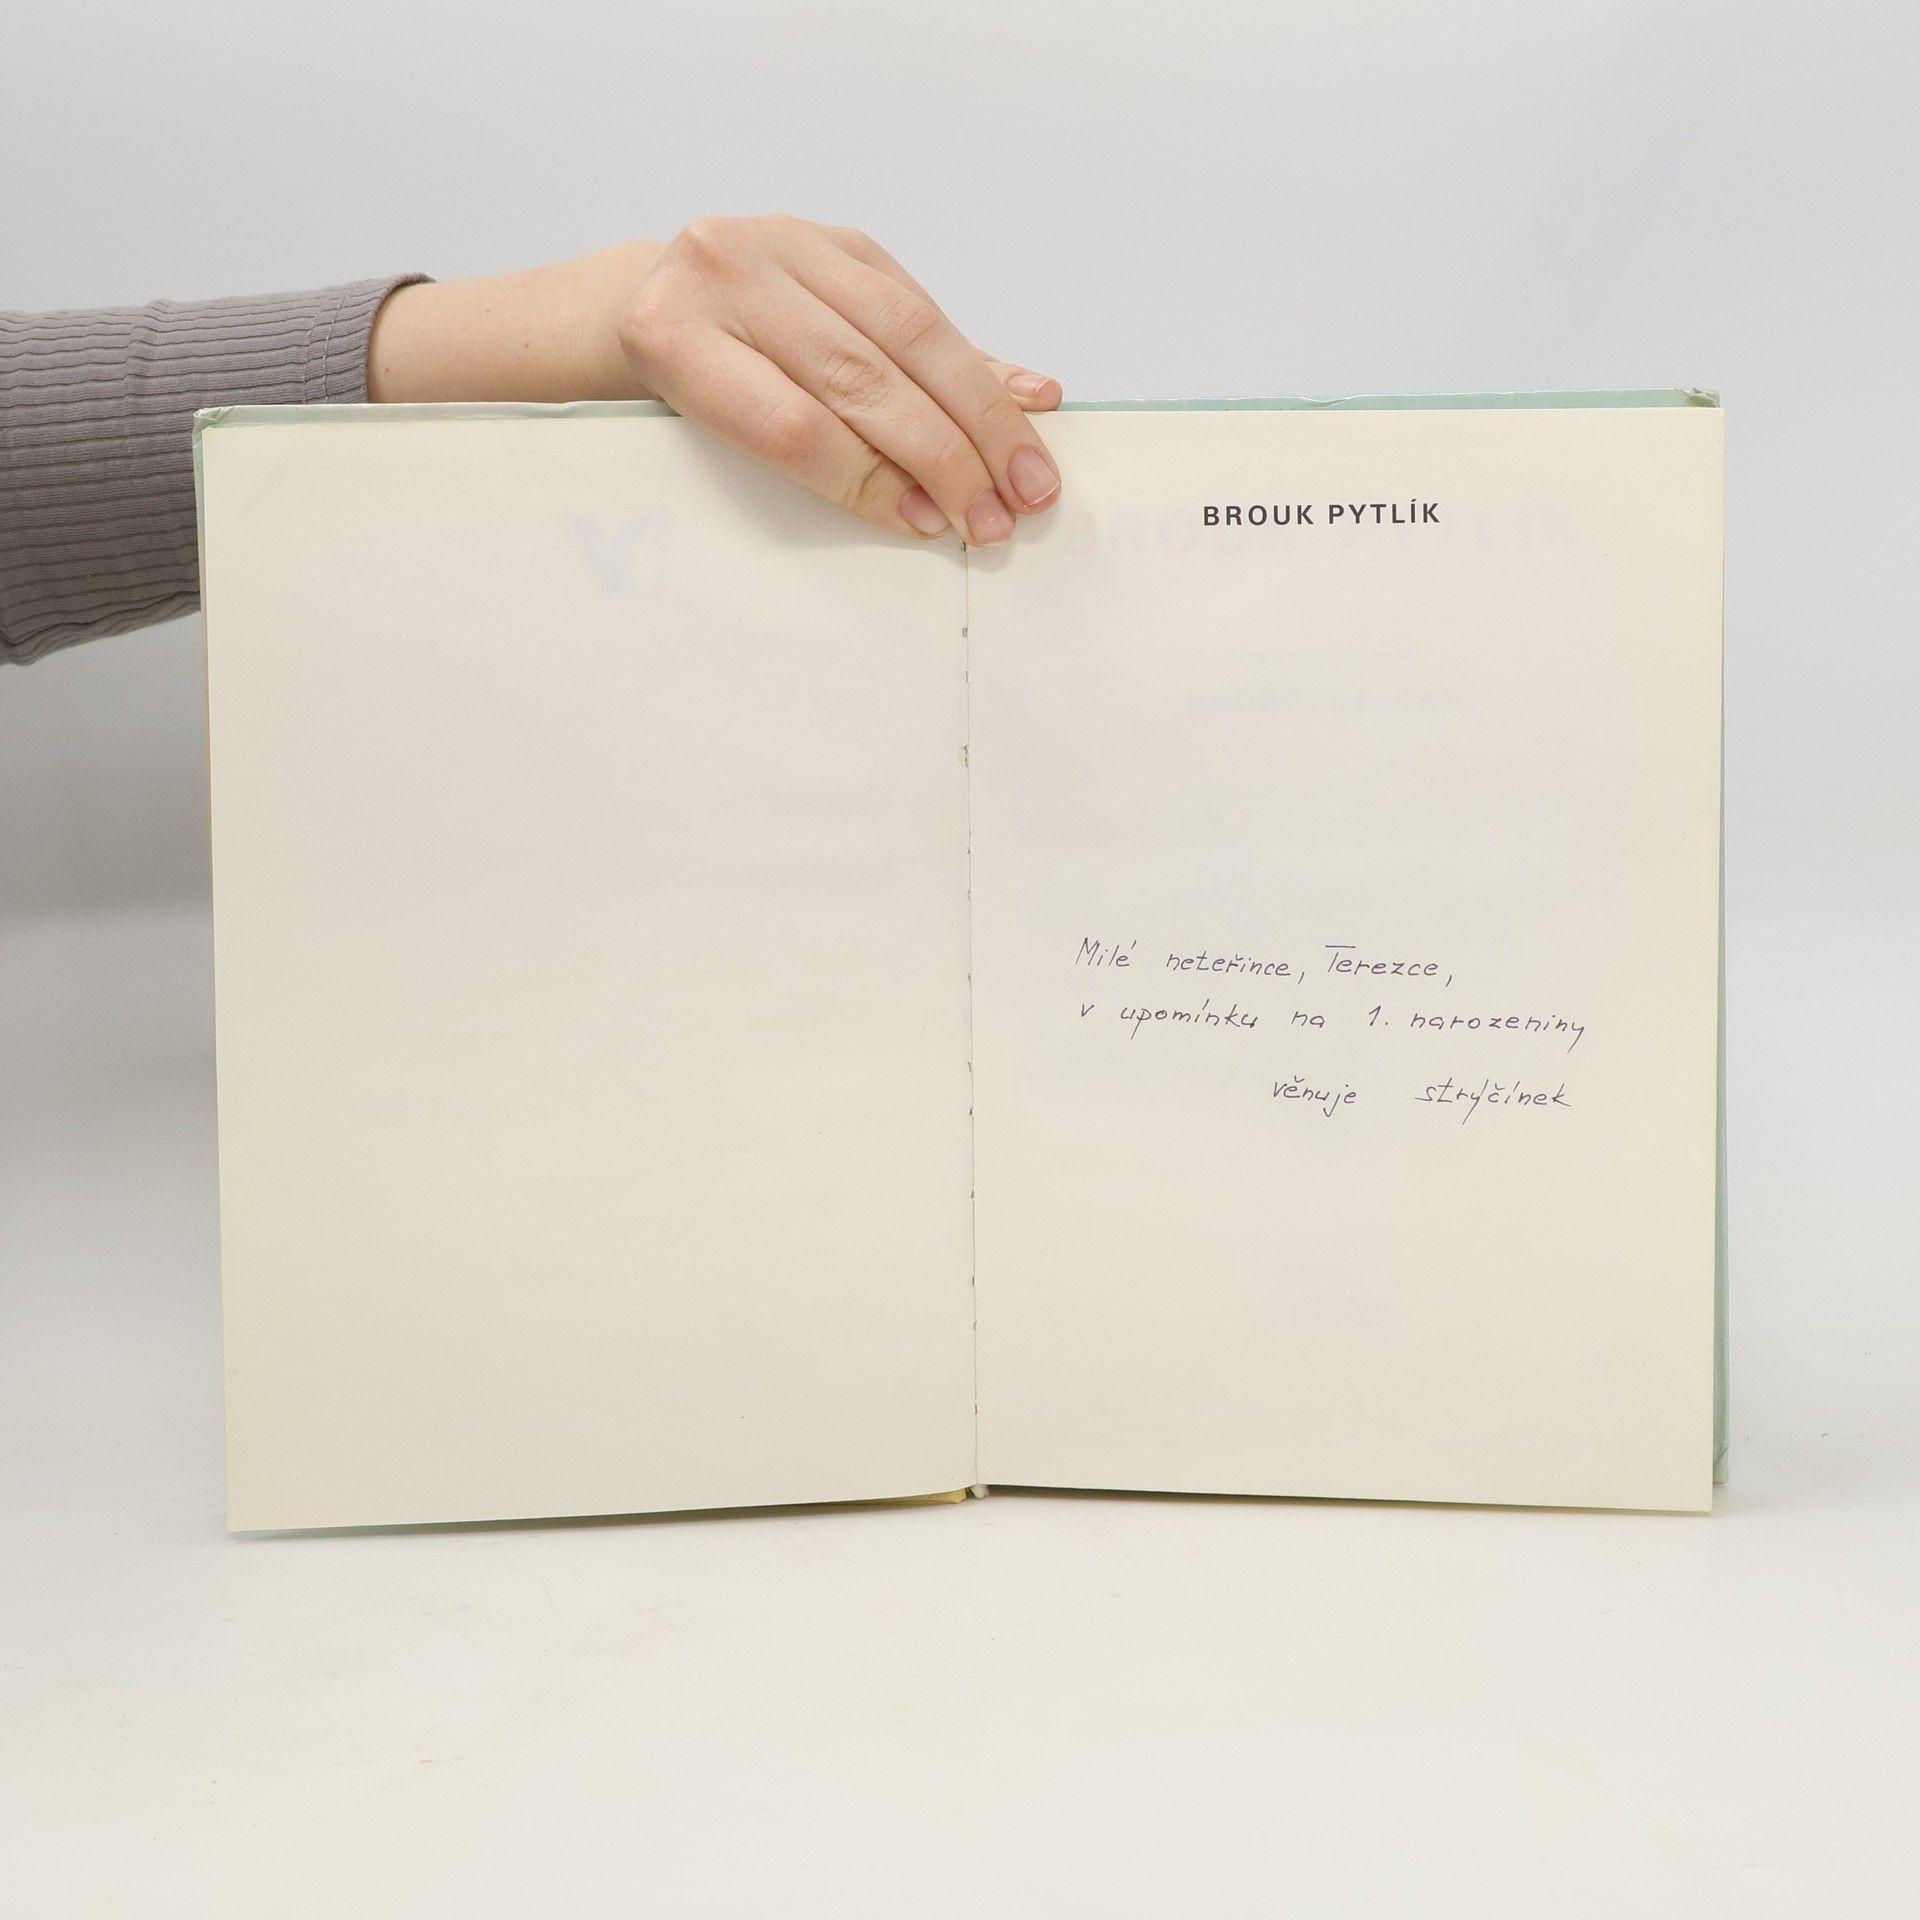 BROUK PYTLÍK
Milé neteřince, Terezce,
v upomínku na 1. narozeniny
věnuje strýčinek